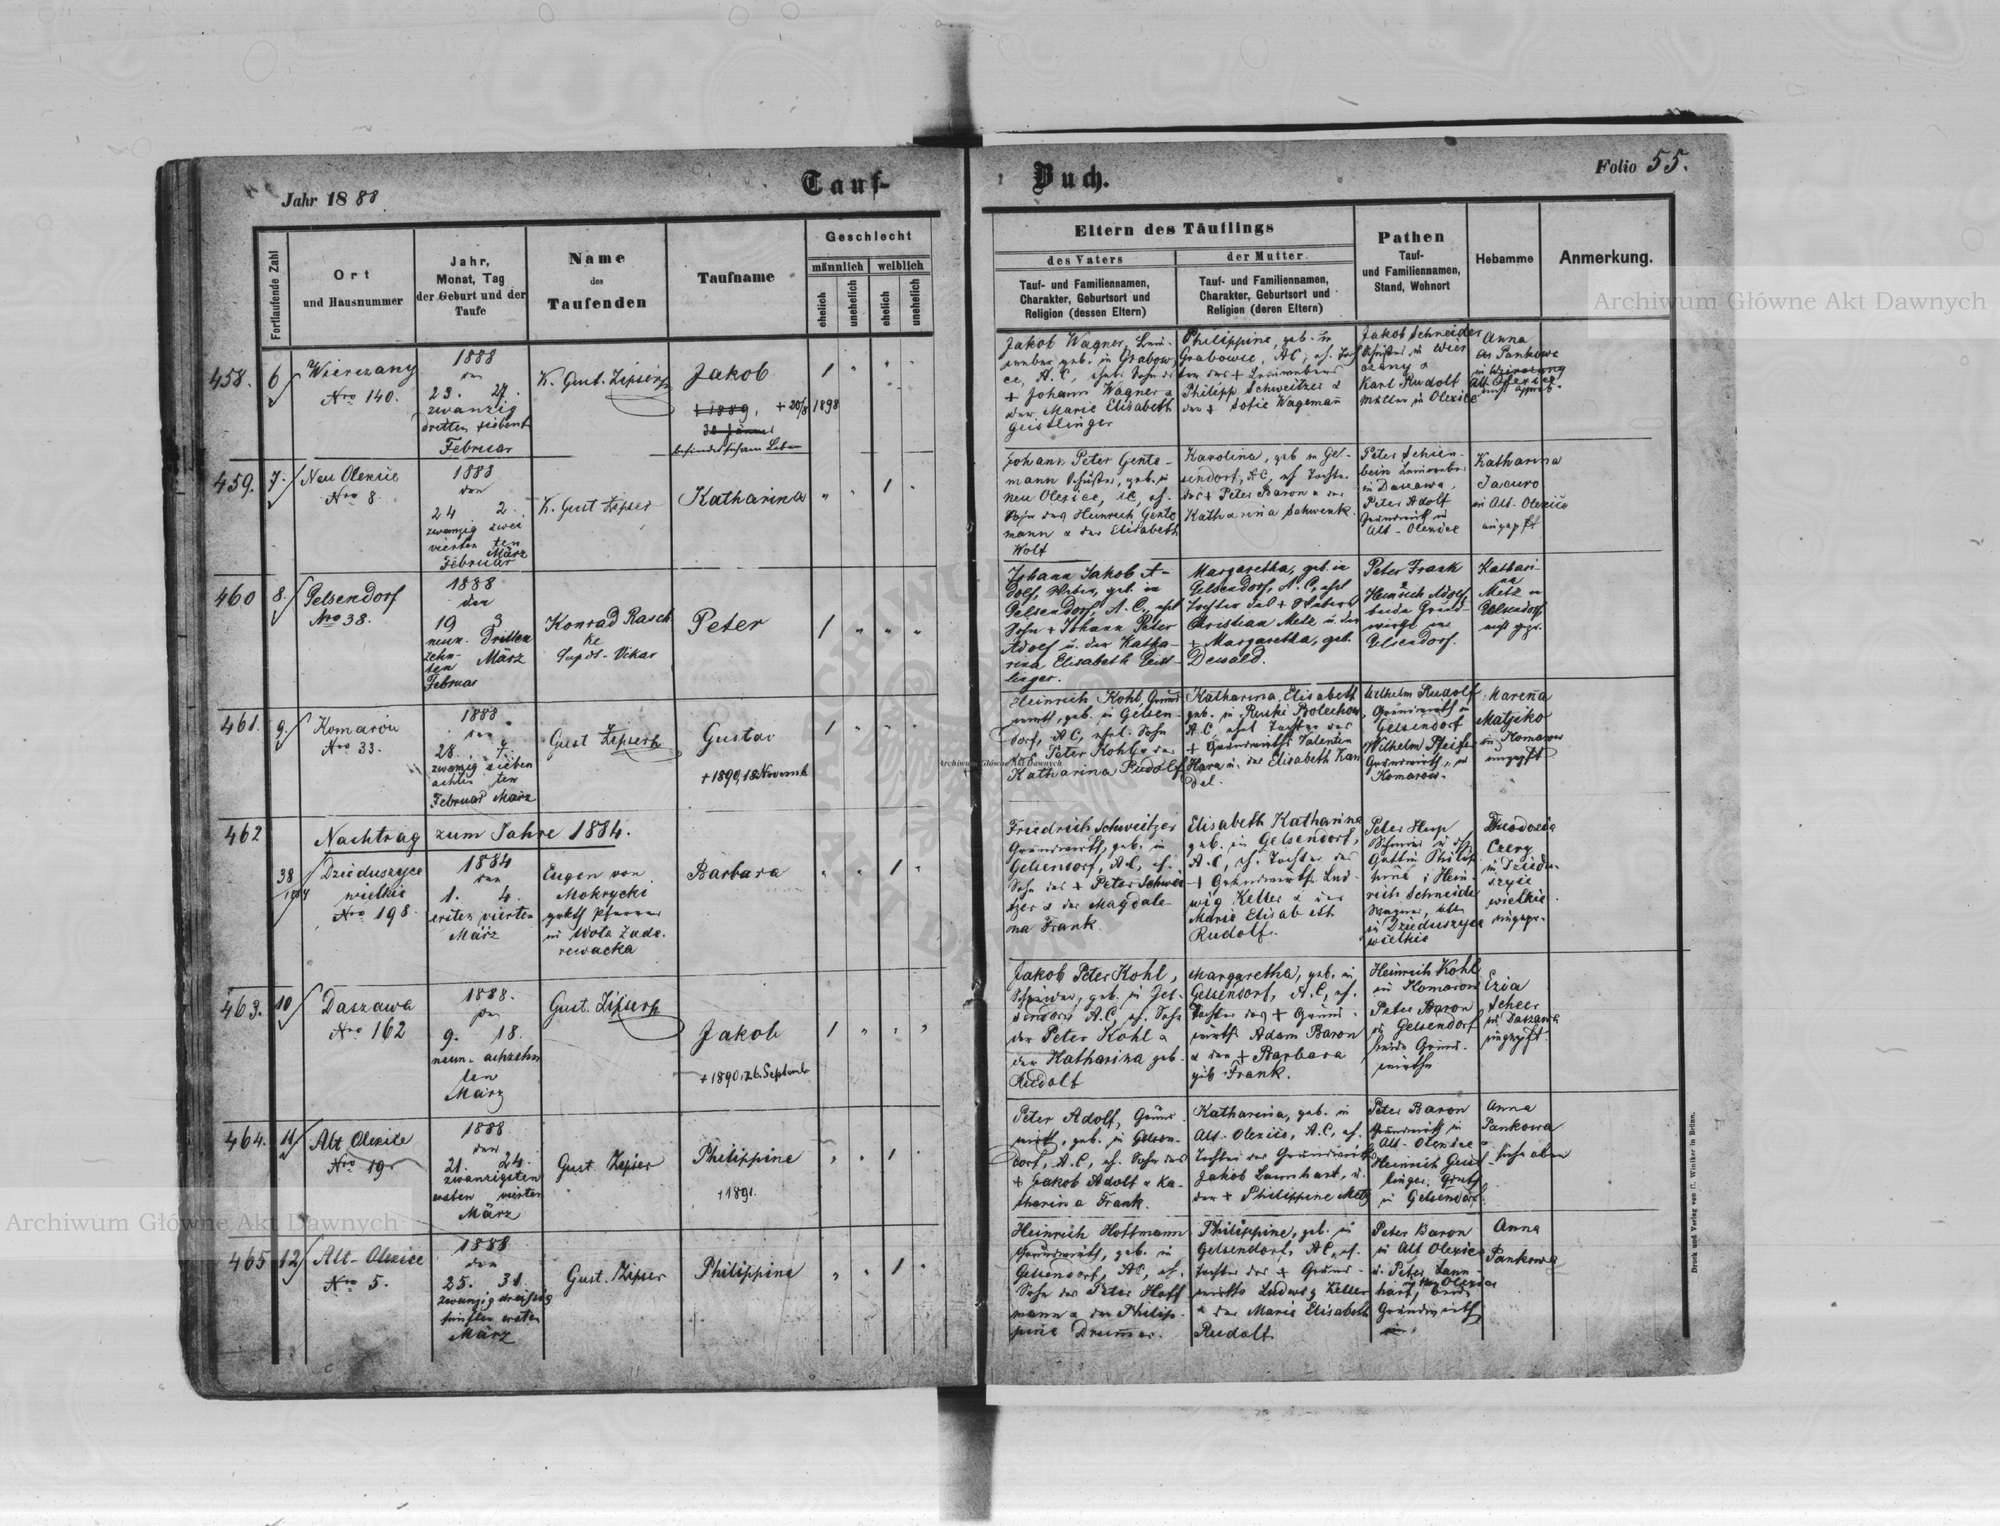 Jahr 1888
Tauf-
Buch.
Folio 55.
Fortlaufende Zahl
Ort
und Hausnummer
Jahr,
Monat, Tag
der Geburt und der
Taufe
Name
des
Taufenden
Taufname
Geschlecht
männlich
weiblich
ehelich
unehelich
ehelich
unehelich
Eltern des Täuflings
des Vaters
der Mutter
Tauf- und Familiennamen,
Charakter, Geburtsort und
Religion (dessen Eltern)
Tauf- und Familiennamen,
Charakter, Geburtsort und
Religion (deren Eltern)
Pathen
Tauf-
und Familiennamen,
Stand, Wohnort
Hebamme
Anmerkung.
458. 6
Wierczany
Nro 140.
1888
den
23. 27.
zwanzig
dritten siebent
Februar
K. Gust. Zipser
Jakob
+ 1889, + 20/8 1898
30 Jänner
1
Jakob Wagner,
geb. in Grabow
ce, A.C., ehel. Sohn des
+ Johann Wagner u
der Marie Elisabeth
Geistlinger
Philippine, geb. in
Grabowce, AC, eh. Toch
ter des +
Philipp Schweitzer u
der + Sofie Wagemañ
Jakob Schneider
in Wier
czany u
Karl Rudolf
Müller in Olexice
Anna
Pankowa
459. 7.
Neu Olexice
Nro 8.
1888
den
24 2.
zwanzig zwei
vierten ten
März
Februar
K. Gust Zipser
Katharina
1
Johann Peter Gente-
mann Schuster, geb. in
Neu Olexice, AC, eh.
Sohn des Heinrich Gente
mann u der Elisabeth
Wolf
Karolina, geb in Gel-
sendorf, AC, eh Tochter
des + Peter Baron u der
Katharina Schwenk.
Peter Schien-
bein
in Daszawa,
Peter Adolf
Grundwirth in
Alt-Olexice
Katharina
Jacuro
in Alt-Olexice
ungeprft
460 8.
Gelsendorf
Nro 38.
1888
den
19 3
neun- Dritten
zehn-
ten März
Februar
Konrad Rasch
ke
Supdt-Vikar
Peter
1
Johann Jakob A-
dolf, Weber, geb. in
Gelsendorf, A.C., ehel
Sohn + Johann Peter
Adolf u. der Katha-
rina Elisabeth Geist-
linger.
Margaretha, geb. in
Gelsendorf, A.C., ehel
Tochter des + Webers
Christian Metz u. der
+ Margaretha, geb.
Dewald.
Peter Frank
Heinrich Adolf,
beide Grund-
wirthe in
Gelsendorf.
Kathari-
na
Metz in
Gelsendorf
nicht gepr.
461. 9.
Komarów
Nro 33.
1888
den
28. 7.
zwanzig sieben
achten ten
Februar März
Gust Zipser
Gustav
+ 1890, 18 November
1
Heinrich Kohl, Grund
wirth, geb. in Gelsen
dorf, AC, ehel. Sohn
des Peter Kohl u der
Katharina Rudolf
Katharina Elisabeth
geb. in Ruski Bolechow
AC, ehel Tochter des
+ Grundwirths Valentin
Hara u. der Elisabeth Kan
del
Wilhelm Rudolf
Grundwirth in
Gelsendorf
Wilhelm Pfeifer
Grundwirth in
Komarow.
Mareña
Matjiko
in Komarow
ungeprft
462
Nachtrag zum Jahre 1884.
38
1884
Dzieduszyce
wielkie
Nro 198.
1884
den
1. 4.
ersten vierten
März
Eugen von
Mokrycki
gr. kth Pfarrer
in Wola Zade-
rewacka
Barbara
1
Friedrich Schweitzer
Grundwirth, geb. in
Gelsendorf, A.C., eh.
Sohn des + Peter Schwei
tzer u der Magdale-
na Frank.
Elisabeth Katharina
geb. in Gelsendorf,
A.C, eh. Tochter des
+ Grundwirths Lud-
wig Keller u der
Marie Elisabeth
Rudolf.
Peter Hup
Gattin Philip
pine; Hein-
rich Schneider
Wagner, alle
in Dzieduszyce
wielkie
Theodozia
Czerg
in Dziedu-
szyce
wielkie
ungepr.
463. 10
Daszawa
Nro 162
1888.
den
9. 18.
neun- achzehn
ten
März
Gust. Zipser
Jakob
+ 1890, 26. September
1
Jakob Peter Kohl,
Schneider, geb. in Gel-
sendorf A.C, eh. Sohn
der Peter Kohl u
der Katharina geb.
Rudolf
Margaretha, geb. in
Gelsendorf, A.C, eh.
Tochter des + Grund-
wirths Adam Baron
u der + Barbara
geb Frank.
Heinrich Kohl
in Komarow
Peter Baron
in Gelsendorf
beide Grund-
wirthe
Ezia
Scheer
in Daszawa
ungeprft.
464. 11
Alt Olexice
Nro 19
1888
den
21. 24.
zwanzigsten
ersten vierten
März
Gust. Zipser
Philippine
+ 1891.
1
Peter Adolf, Grund
wirth, geb. in Gelsen-
dorf, A.C, eh. Sohn des
+ Jakob Adolf u Ka-
tharina Frank.
Katharina, geb. in
Alt-Olexice, A.C, eh.
Tochter des Grundwirths
Jakob Laufhart, u.
der + Philippine Metz
Peter Baron
Grundwirth in
Alt-Olexice u
Heinrich Geist
linger, Grdwth
in Gelsendorf.
Anna
Pankowa
siehe oben
465 12
Alt-Olexice
Nro 5.
1888
den
25. 31.
zwanzig dreissig
fünften ersten
März
Gust. Zipser
Philippine
1
Heinrich Hoffmann
Grundwirth, geb. in
Gelsendorf, AC, eh.
Sohn des Peter Hoff
mann u der Philip-
pine Drumer.
Philippine, geb. in
Gelsendorf, AC, eh.
Tochter des + Grund-
wirths Ludwig Keller
u der Marie Elisabeth
Rudolf.
Peter Baron
in Alt Olexice
u. Peter Lann-
hart, beide
Grundwirth
Anna
Pankowa
Druck und Verlag von C. Winiker in Brünn.
Archiwum Główne Akt Dawnych
Archiwum Główne Akt Dawnych
Archiwum Główne Akt Dawnych